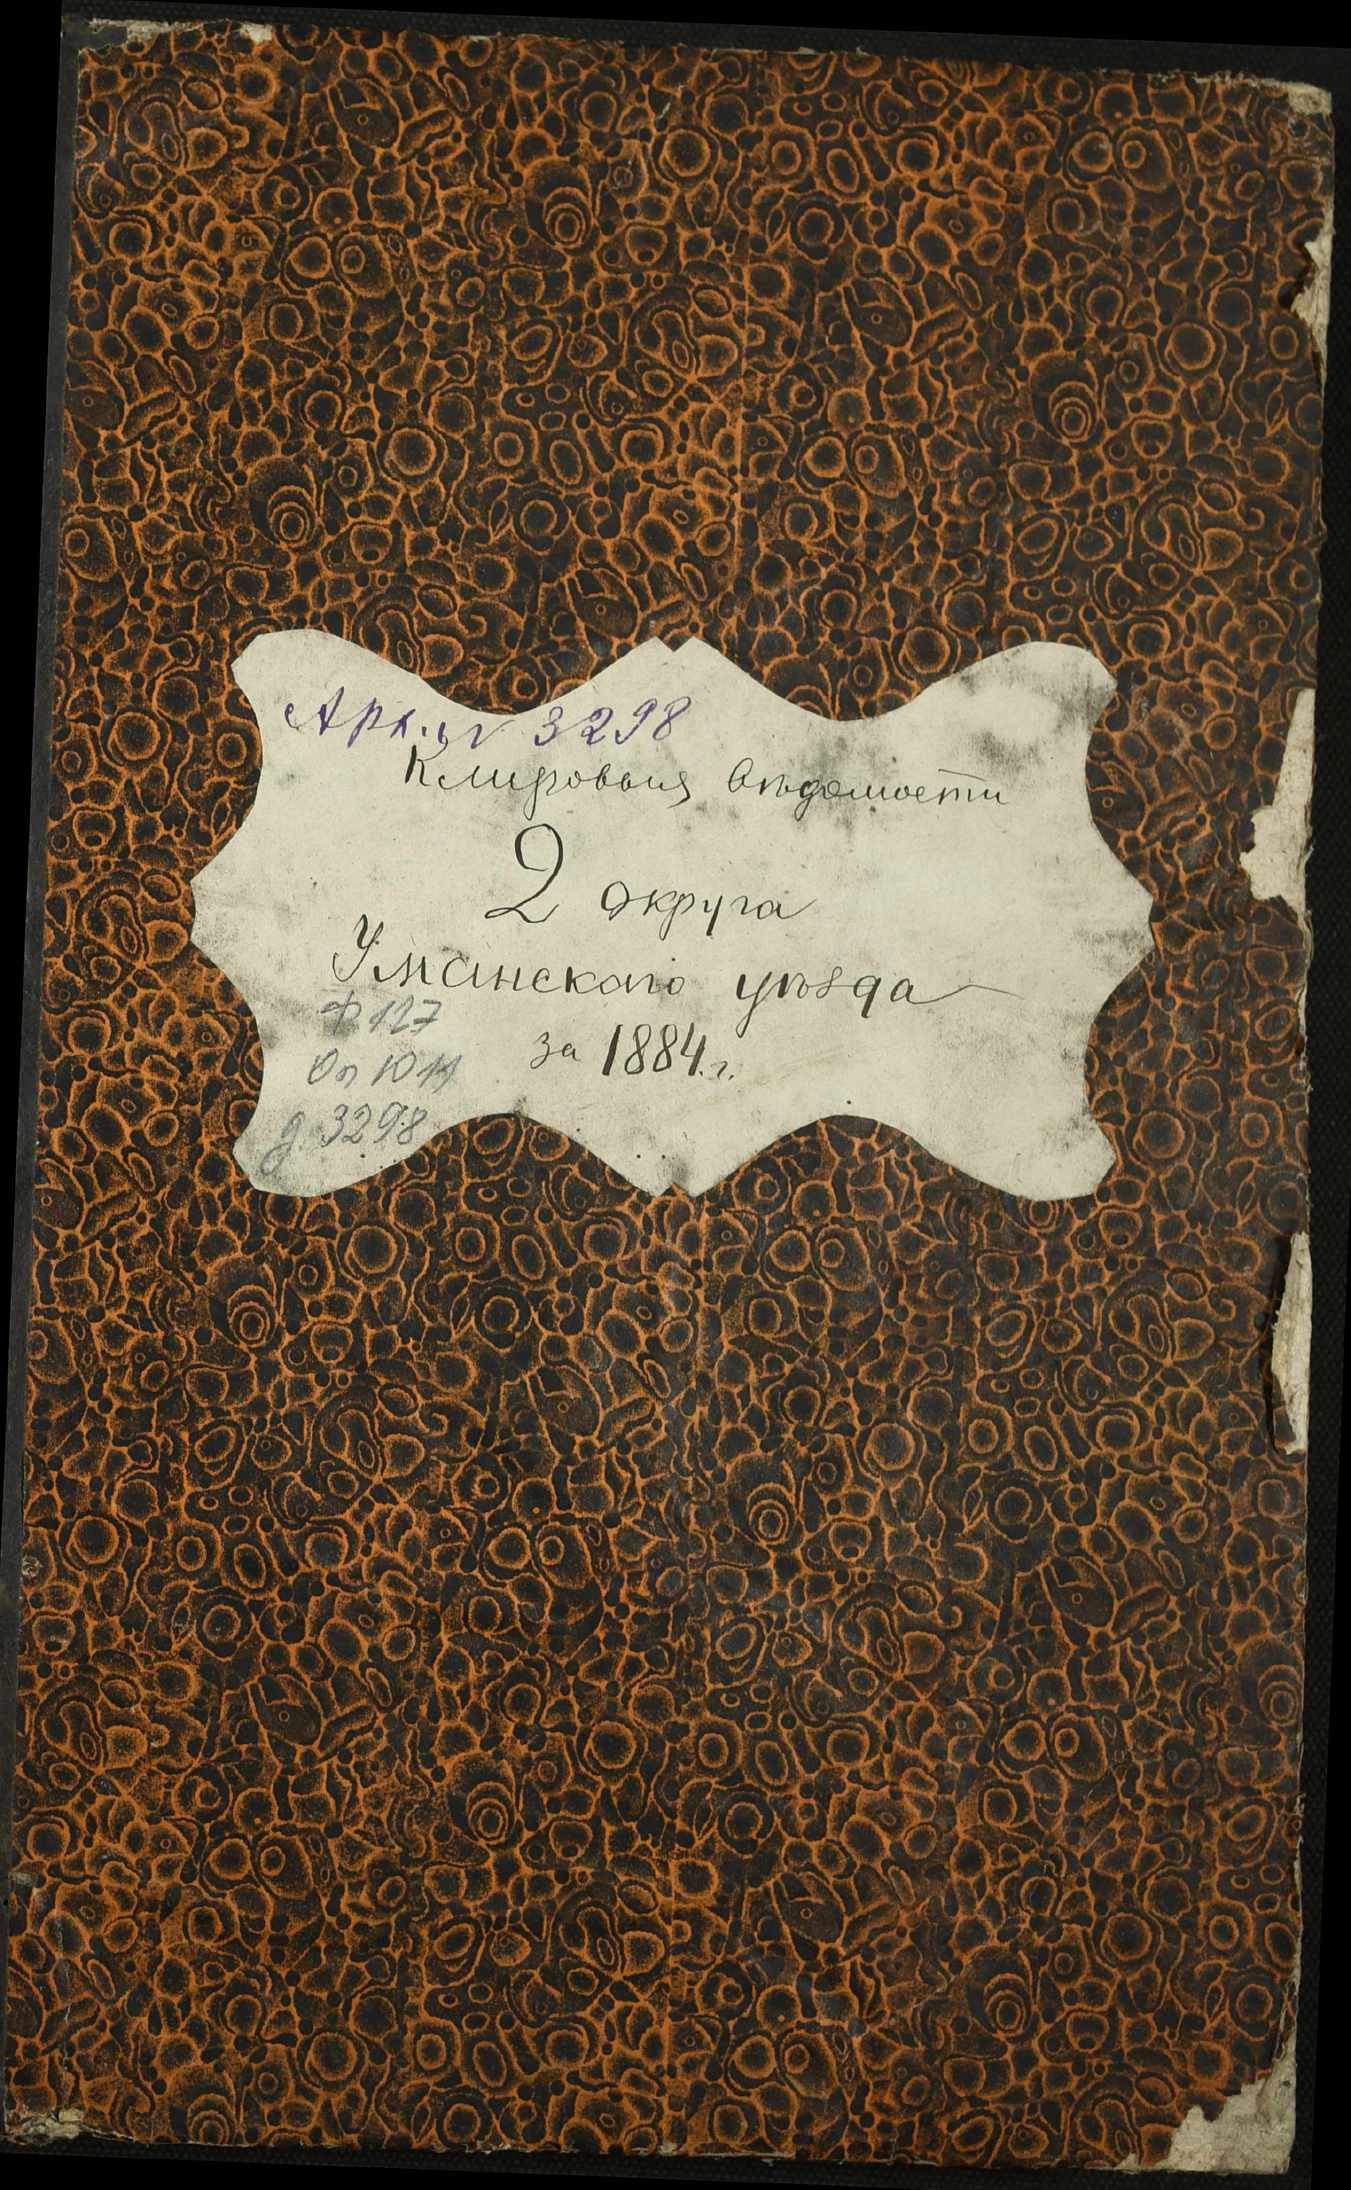 Арх. № 3298
Клировыя вѣдомости
2 округа
Уманскаго уѣзда
за 1884 г.
Ф 127
Оп 1011
д. 3298